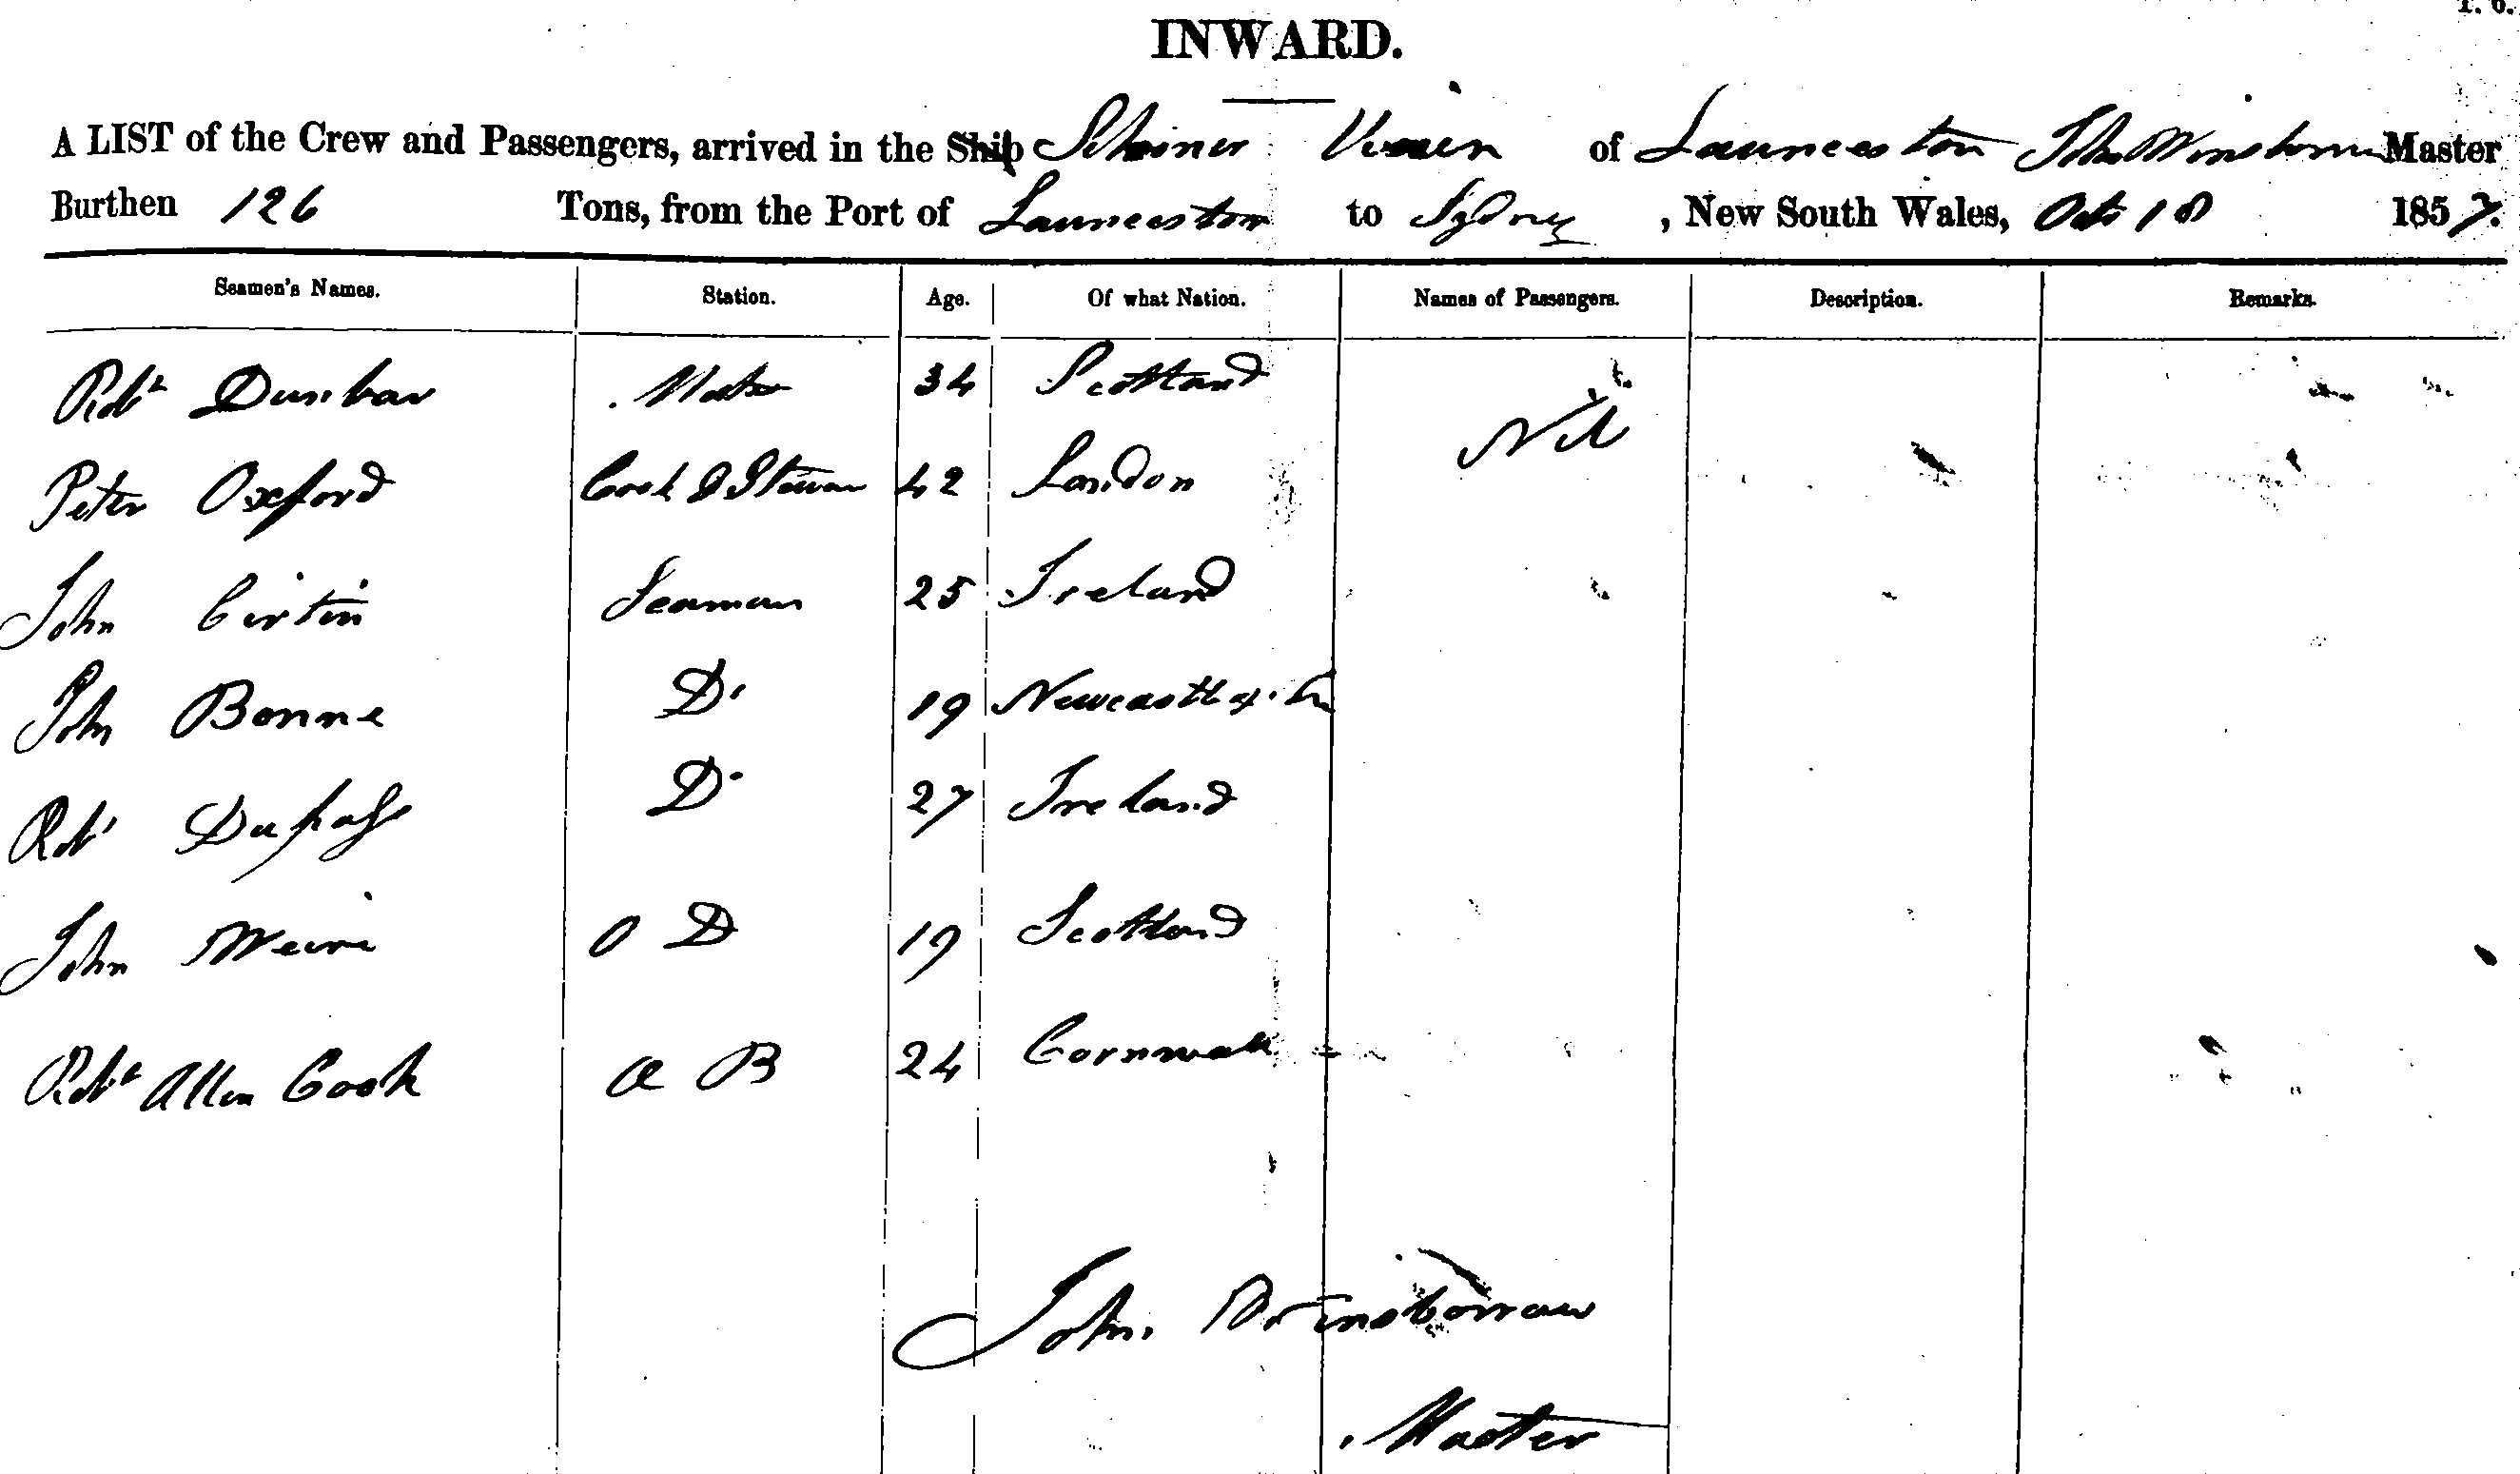 INWARD.
A LIST of the Crew and Passengers, arrived in the Ship Schooner of Launceston John Master
Burthen 126 Tons, from the Port of Launceston to Sydney, New South Wales, Oct 18 1857.
Seamen's Names. Station. Age. Of what Nation. Names of Passengers. Description. Remarks.
Robt Dunbar Mate 34 Scotland Nil
Peter Oxford Cook & Steward 42 London
John Cirtin Seaman 25 Ireland
John Bonne Do 19 Newcastle
Robt 27 Ireland
John O D 19 Scotland
Robt Allen Cook A B 24 Cornwall
John Brinsborrow
Master